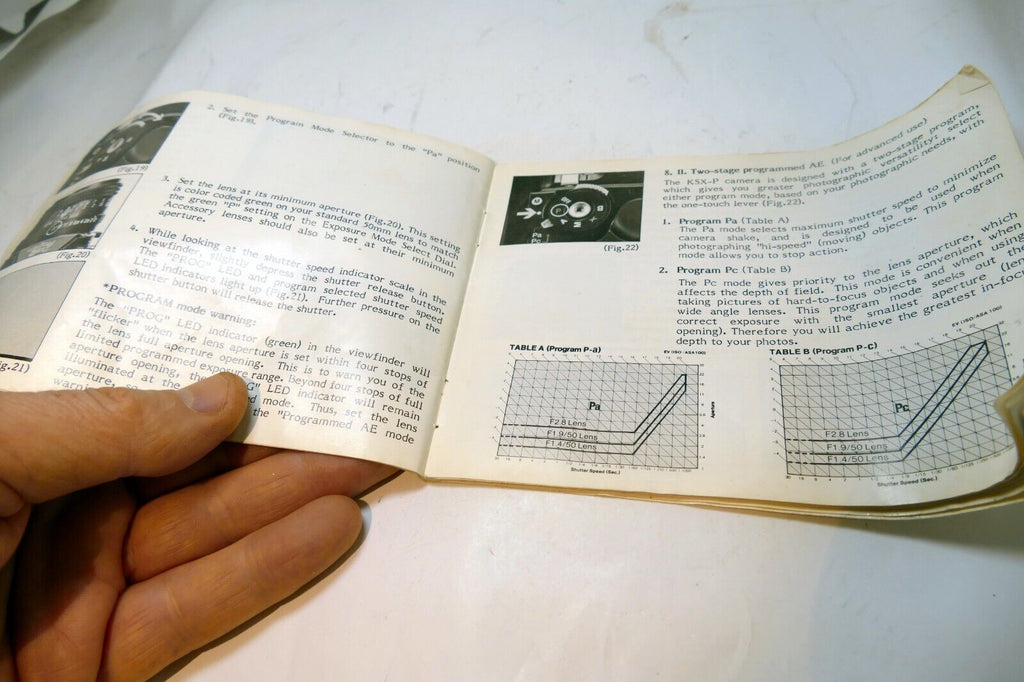 2. Set the Program Mode Selector to the "Pa" position
(Fig.19).
(Fig.19)
3. Set the lens at its minimum aperture (Fig.20). This setting
is color coded green on your standard 50mm lens to match
the green "P" setting on the Exposure Mode Select Dial.
Accessory lenses should also be set at their minimum
aperture.
(Fig.20)
4. While looking at the shutter speed indicator scale in the
viewfinder, slightly depress the shutter release button.
The "PROG" LED and program selected shutter speed
LED indicators light up (Fig.21). Further pressure on the
shutter button will release the shutter.
*PROGRAM mode warning:
The "PROG" LED indicator (green) in the viewfinder will
"flicker" when the lens aperture is set within four stops of
the lens full aperture opening. This is to warn you of the
limited programmed exposure range. Beyond four stops of full
aperture opening, the G" LED indicator will remain
illuminated at the ed mode. Thus, set the lens
aperture, the "Programmed AE mode
warn
g.21)
8. II. Two-stage programmed AE (For advanced use)
The KSX-P camera is designed with a two-stage program,
which gives you greater photographic versatility: select
either program mode, based on your photographic needs, with
the one-touch lever (Fig.22).
Pa
Pc
(Fig.22)
1. Program Pa (Table A)
The Pa mode selects maximum shutter speed to minimize
camera shake, and is designed to be used when
photographing "hi-speed" (moving) objects. This program
mode allows you to stop action.
2. Program Pc (Table B)
The Pc mode gives priority to the lens aperture, which
affects the depth of field. This mode is convenient when
taking pictures of hard-to-focus objects and when using
wide angle lenses. This program mode seeks out the
correct exposure with the smallest aperture (lens
opening). Therefore you will achieve the greatest in-focus
depth to your photos.
TABLE A (Program P-a)
EV (ISO/ASA 100)
Pa
F2.8 Lens
F1.9/50 Lens
F1.4/50 Lens
Aperture
Shutter Speed (Sec.)
TABLE B (Program P-C)
EV (ISO/ASA 100)
Pc
F2.8 Lens
F1.9/50 Lens
F1.4/50 Lens
Shutter Speed (Sec.)